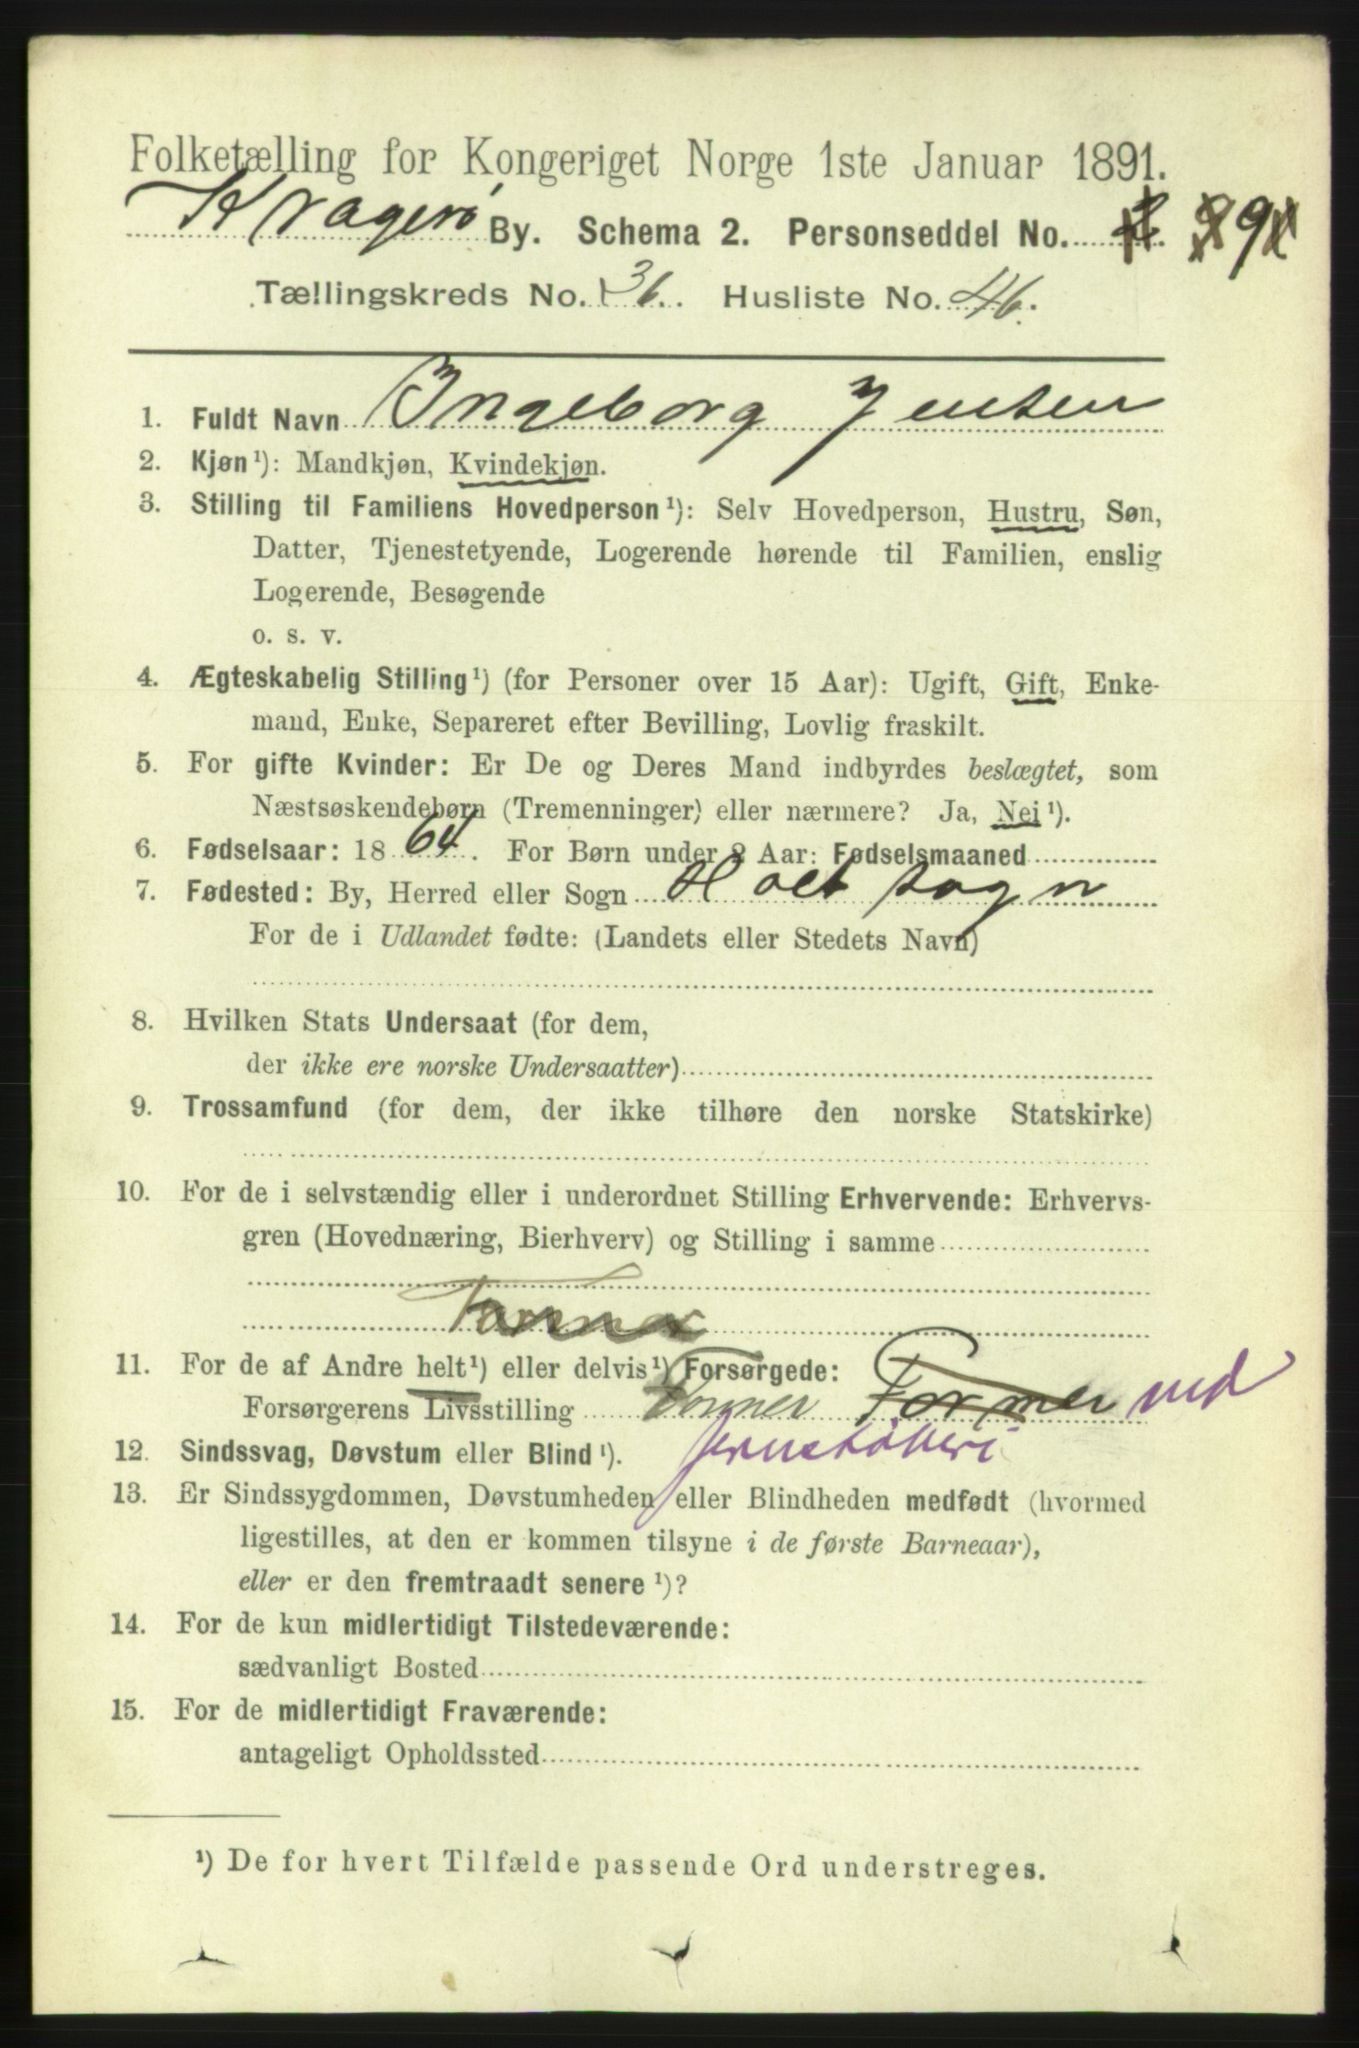 Folketælling for Kongeriget Norge 1ste Januar 1891.
Kragerø By. Schema 2. Personseddel No. 9
Tællingskreds No. 36. Husliste No. 46.
1. Fuldt Navn Ingeborg Jensen
2. Kjøn¹): Mandkjøn, Kvindekjøn.
3. Stilling til Familiens Hovedperson¹): Selv Hovedperson, Hustru, Søn,
Datter, Tjenestetyende, Logerende hørende til Familien, enslig
Logerende, Besøgende
o. s. v.
4. Ægteskabelig Stilling¹) (for Personer over 15 Aar): Ugift, Gift, Enke-
mand, Enke, Separeret efter Bevilling, Lovlig fraskilt.
5. For gifte Kvinder: Er De og Deres Mand indbyrdes beslægtet, som
Næstsøskendebørn (Tremenninger) eller nærmere? Ja, Nei¹).
6. Fødselsaar: 1864. For Børn under 2 Aar: Fødselsmaaned
7. Fødested: By, Herred eller Sogn Holt sogn
For de i Udlandet fødte: (Landets eller Stedets Navn)
8. Hvilken Stats Undersaat (for dem,
der ikke ere norske Undersaatter)
9. Trossamfund (for dem, der ikke tilhøre den norske Statskirke)
10. For de i selvstændig eller i underordnet Stilling Erhvervende: Erhvervs-
gren (Hovednæring, Bierhverv) og Stilling i samme
11. For de af Andre helt¹) eller delvis¹) Forsørgede:
Forsørgerens Livsstilling Former Former ved
Jernstøberi
12. Sindssvag, Døvstum eller Blind¹).
13. Er Sindssygdommen, Døvstumheden eller Blindheden medfødt (hvormed
ligestilles, at den er kommen tilsyne i de første Barneaar),
eller er den fremtraadt senere¹)?
14. For de kun midlertidigt Tilstedeværende:
sædvanligt Bosted
15. For de midlertidigt Fraværende:
antageligt Opholdssted
¹) De for hvert Tilfælde passende Ord understreges.